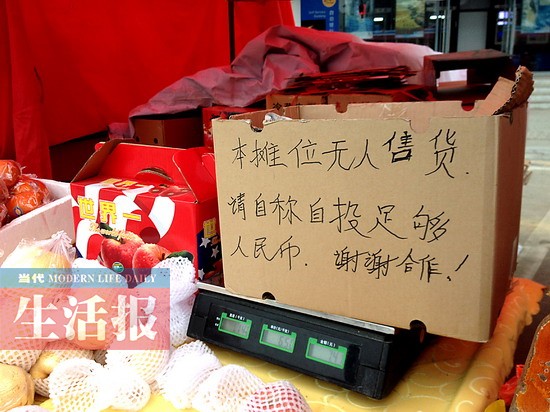 本摊位无人售货.
请自称自投足够
人民币. 谢谢合作.!
世界一
当代 MODERN LIFE DAILY
生活报